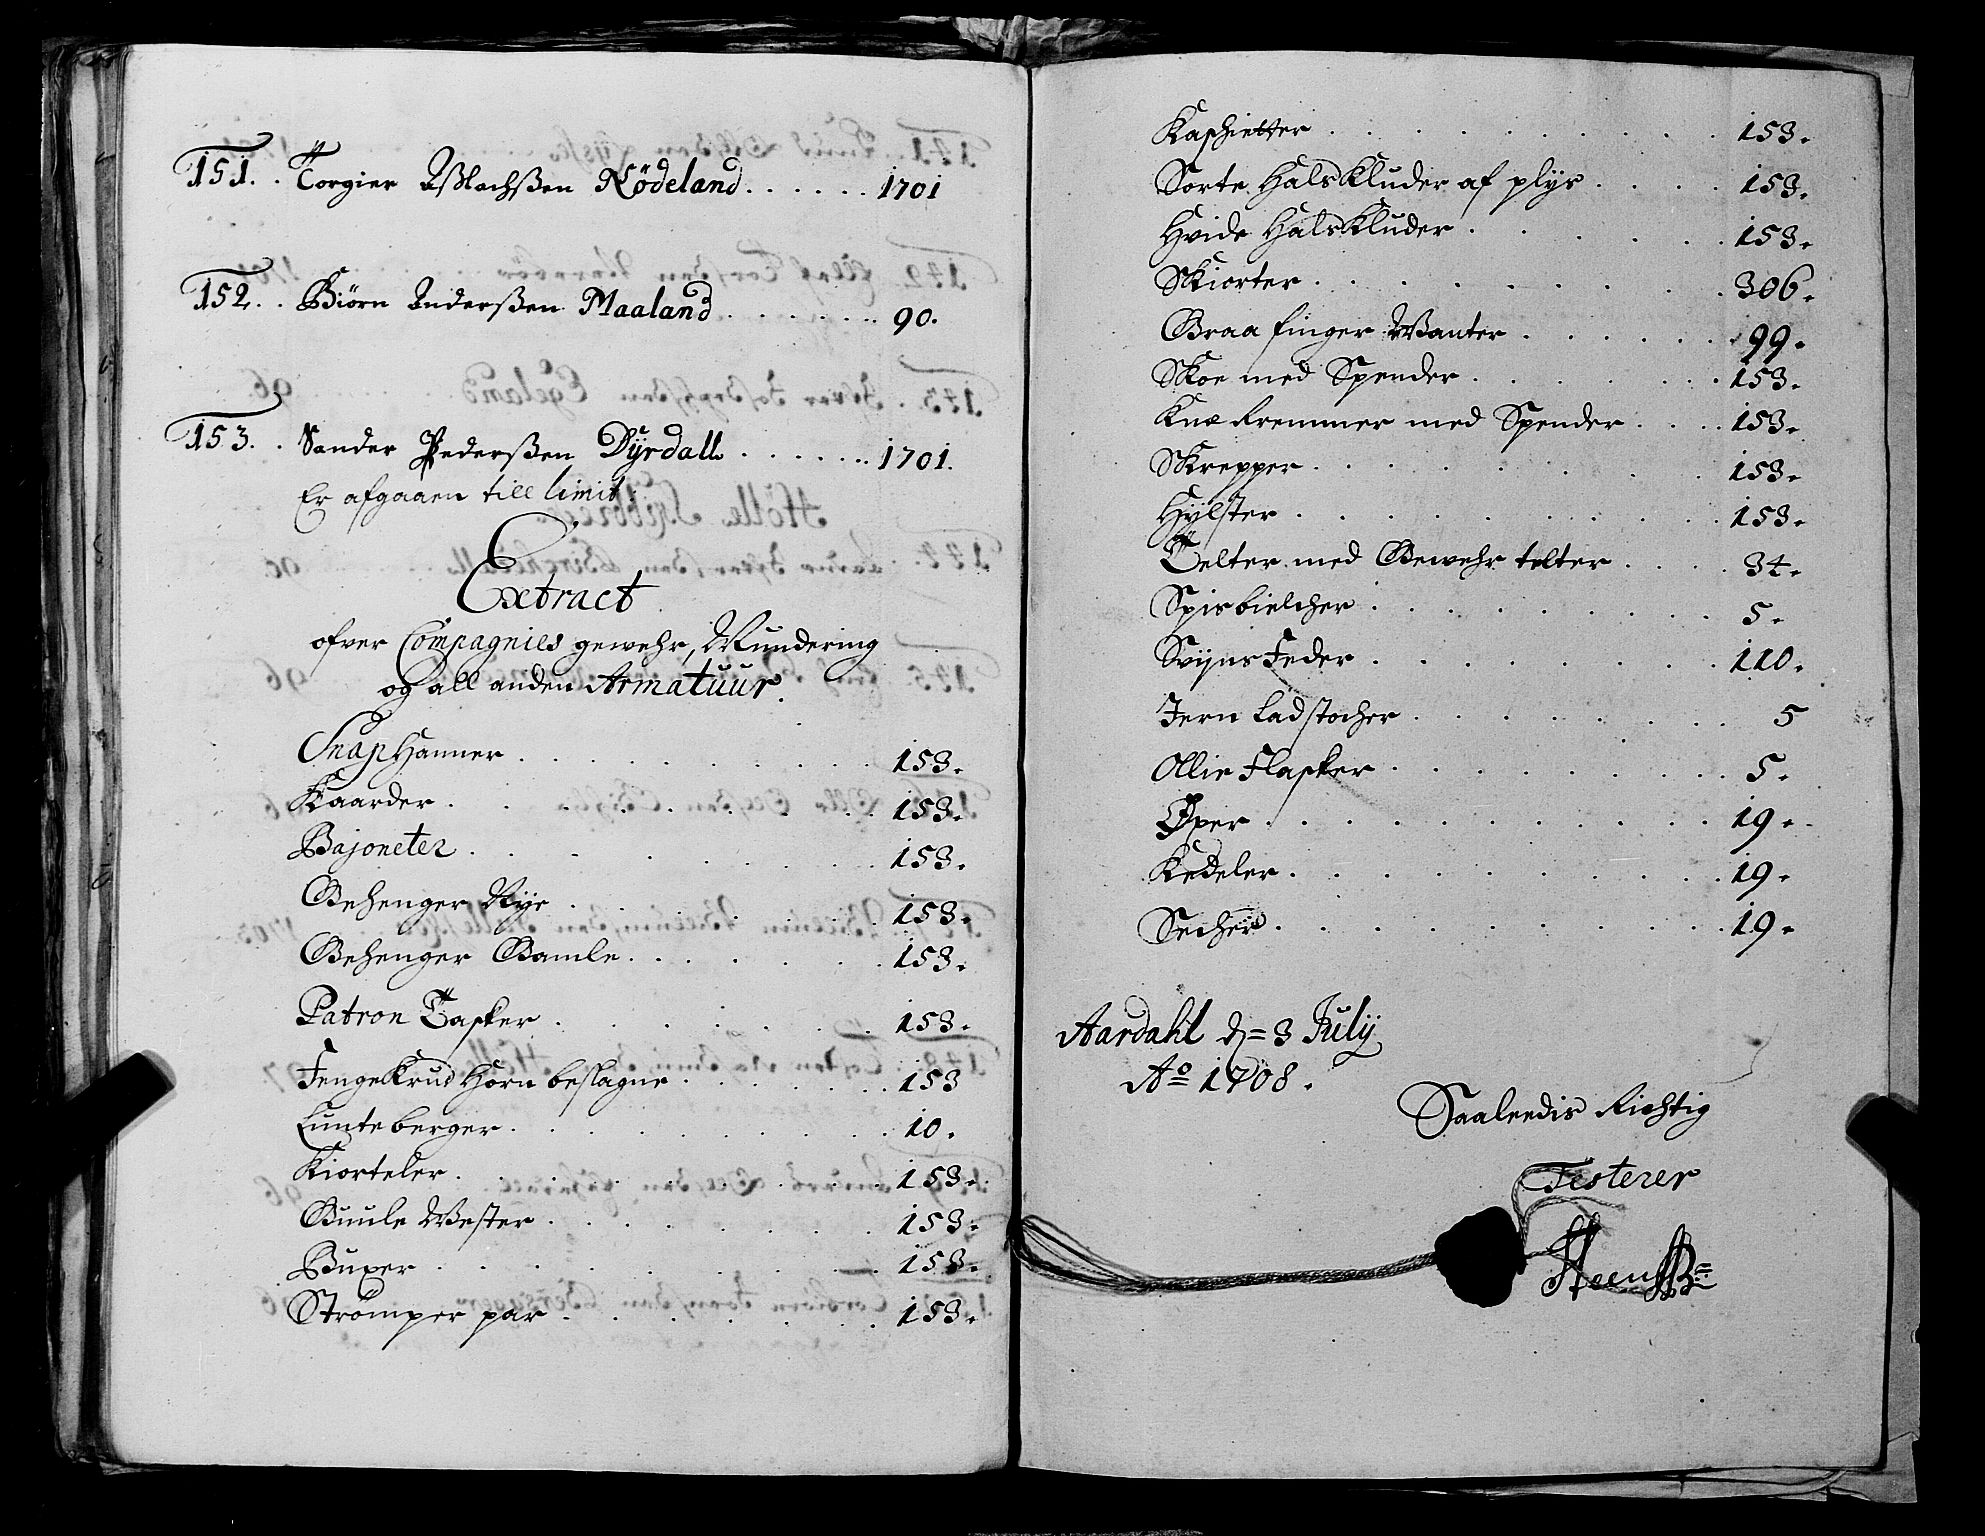 151. . Torgier Aßlachßen Nödeland . . . . . . 1701
152. . Biörn Anderßen Maaland . . . . . . . 90.
153. . Sander Pederßen Dÿrdall . . . . . . 1701.
Er afgaaen till limit:
Extract
ofver Compagnies gewehr, Mundering
og all anden Armatuur.
Snaphanner . . . . . . . . . 153.
Kaarder . . . . . . . . 153.
Bajoneter . . . . . . . . 153.
Gehenger Nÿe . . . . . . 153.
Gehenger Gamle . . . . . . 153.
Patron Tasker . . . . . . 153.
Fengekrud Horn beslagne . . . . . 153
Lunte berger . . . . . . . . 10.
Kiorteler . . . . . . . . 153.
Guule Vester . . . . . . . 153.
Buxer . . . . . . . . 153.
Strömper par . . . . . . 153.
Kaskietter . . . . . . . . . 153.
Sorte Halskluder af plÿs . . . . 153.
Hvide Halskluder . . . . . . 153.
Skiorter . . . . . . . . . 306.
Graa finger Wanter . . . . . . 99.
Skoe med Spender . . . . . . 153.
Knæ Remmer med Spender . . . . 153.
Skrepper . . . . . . . . 153.
Hÿlster . . . . . . . . . 153.
Telter med Gewehr telter . . . . 34.
Spisbielcher . . . . . . . . 5.
Svÿns Feder . . . . . . . . 110.
Jern Ladstocher . . . . . . . 5
Ollie Flasker . . . . . . . . 5.
Øxer . . . . . . . . . . 19.
Kedeler . . . . . . . . . 19.
Secher . . . . . . . . . 19.
Aardahl d= 3 Julÿ
Ao 1708.
Saaleedis Rigtig
Testerer